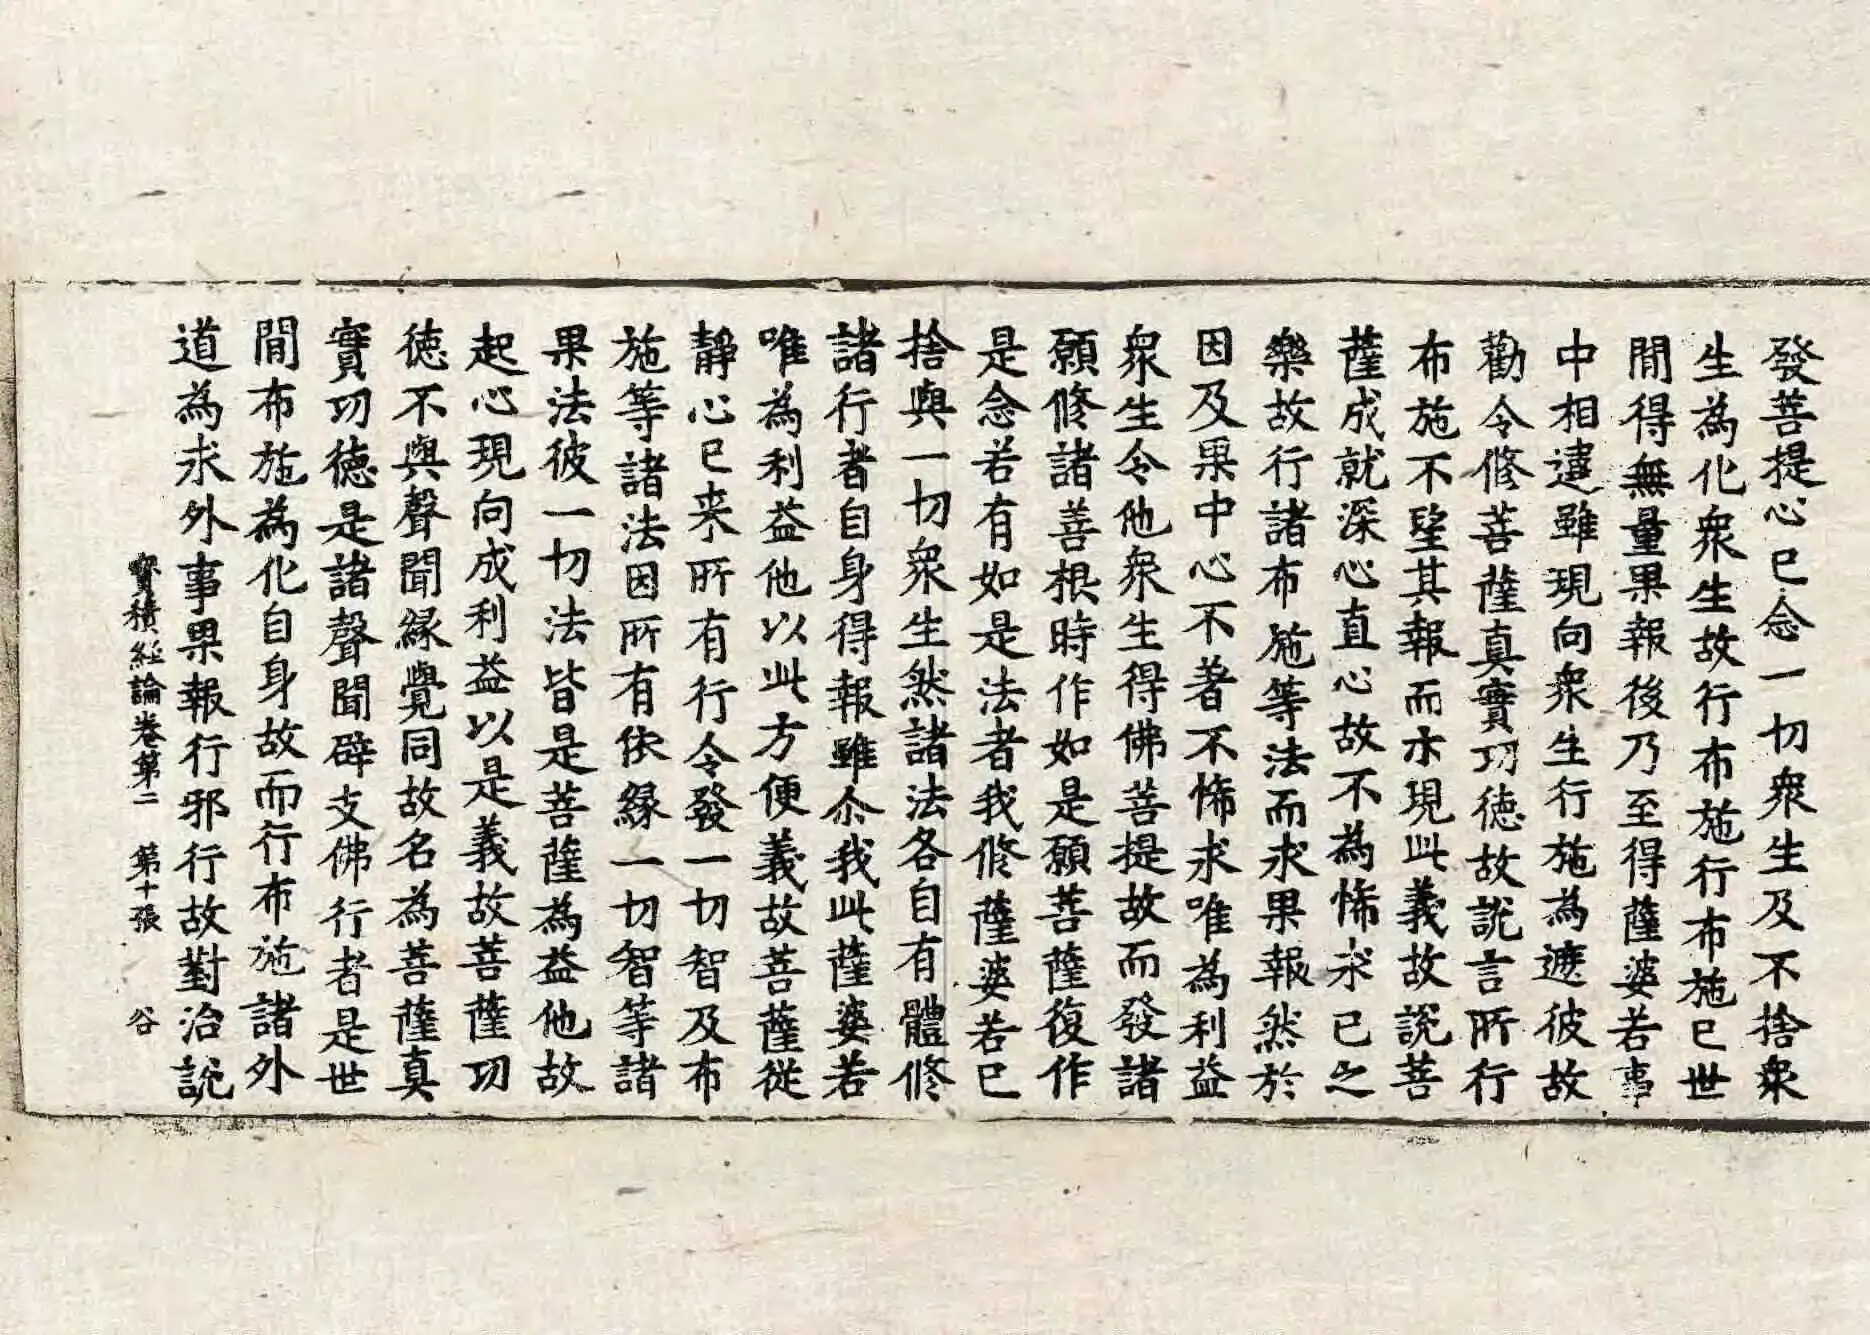 發菩提心已念一切衆生及不捨衆
生為化衆生故行布施行布施已世
間得無量果報後乃至得薩婆若事
中相違雖現向衆生行施為遮彼故
勸令修菩薩真實功徳故說言所行
布施不望其報而示現此義故說菩
薩成就深心直心故不為悕求已之
樂故行諸布施等法而求果報然於
因及果中心不著不悕求唯為利益
衆生令他衆生得佛菩提故而發諸
願修諸善根時作如是願菩薩復作
是念若有如是法者我修薩婆若已
捨與一切衆生然諸法各自有體修
諸行者自身得報雖尒我此薩婆若
唯為利益他以此方便義故菩薩從
靜心已来所有行令發一切智及布
施等諸法因所有依緣一切智等諸
果法彼一切法皆是菩薩為益他故
起心現向成利益以是義故菩薩功
徳不與聲聞緣覺同故名為菩薩真
實功徳是諸聲聞辟支佛行者是世
間布施為化自身故而行布施諸外
道為求外事果報行邪行故對治說
寶積經論卷第二　第十張　谷